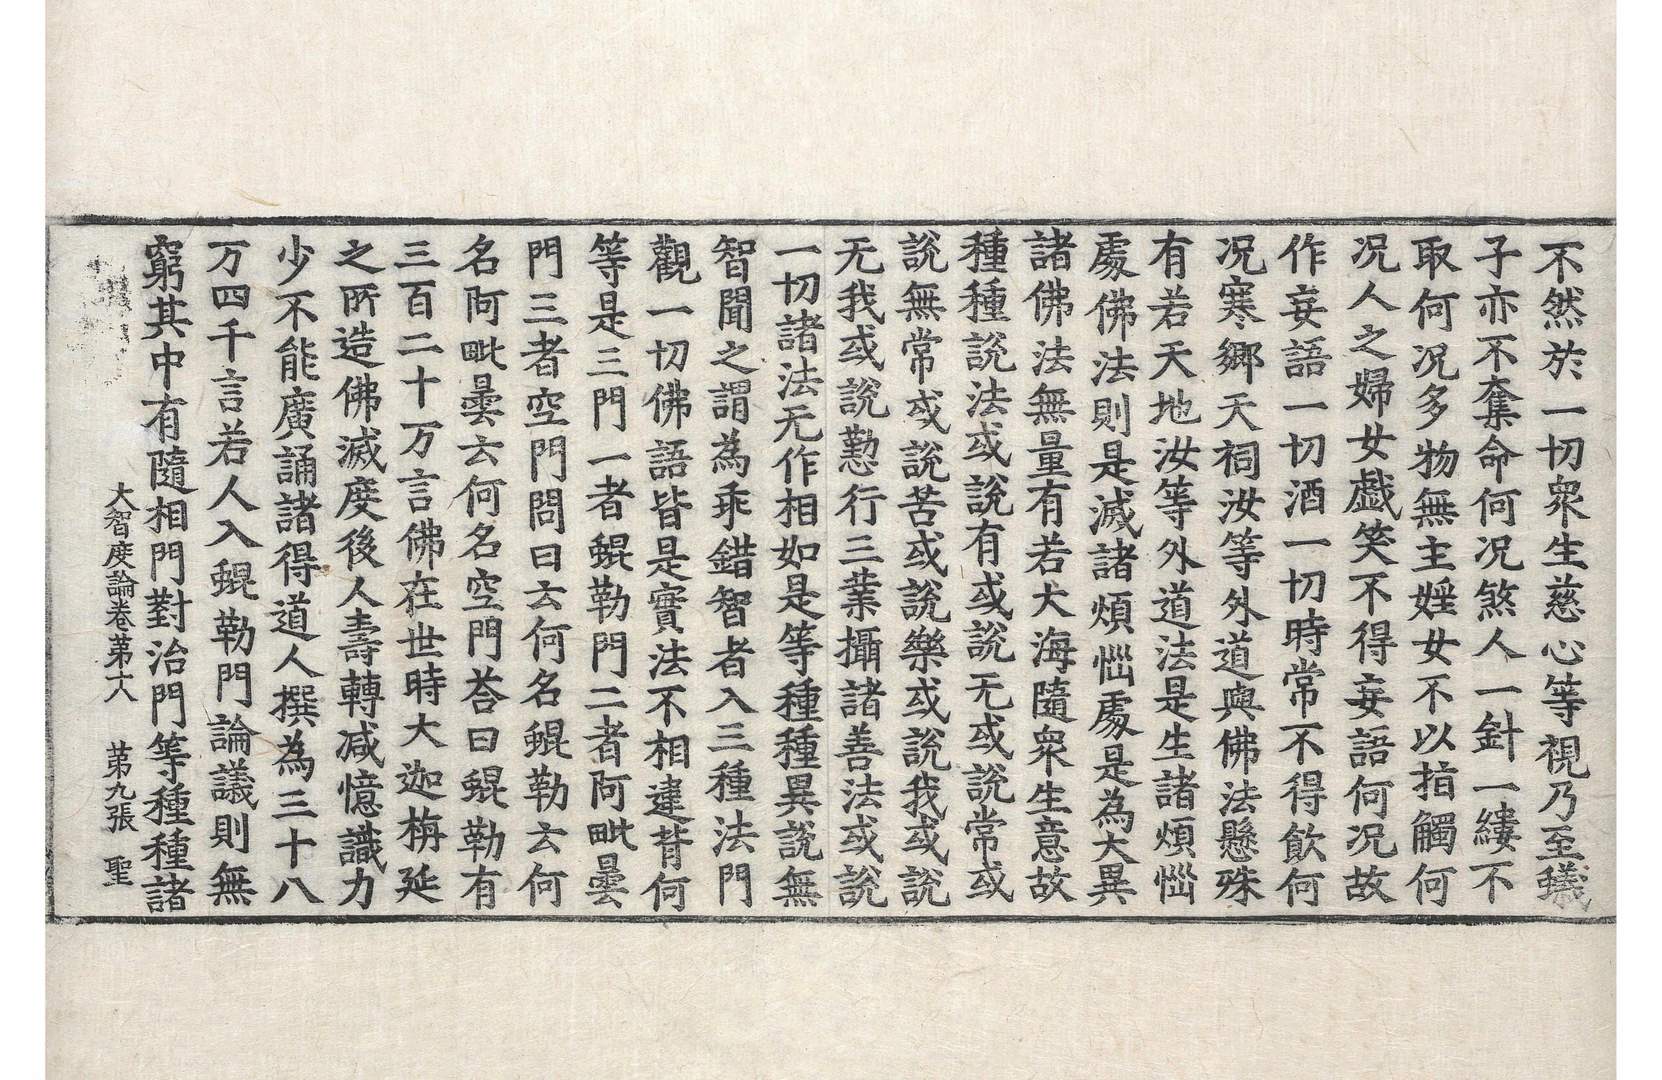 不然於一切衆生慈心等視乃至蟻
子亦不奪命何况煞人一針一縷不
取何况多物無主婬女不以指觸何
况人之婦女戱笑不得妄語何况故
作妄語一切酒一切時常不得飲何
况寒鄉天祠汝等外道與佛法懸殊
有若天地汝等外道法是生諸煩惱
處佛法則是滅諸煩惱處是為大異
諸佛法無量有若大海隨衆生意故
種種說法或說有或說无或說常或
說無常或說苦或說樂或說我或說
无我或說懃行三業攝諸善法或說
一切諸法无作相如是等種種異說無
智聞之謂為乖錯智者入三種法門
觀一切佛語皆是實法不相違背何
等是三門一者鯤勒門二者阿毗曇
門三者空門問曰云何名鯤勒云何
名阿毗曇云何名空門荅曰鯤勒有
三百二十万言佛在世時大迦栴延
之所造佛滅度後人壽轉减憶識力
少不能廣誦諸得道人撰為三十八
万四千言若人入鯤勒門論議則無
窮其中有隨相門對治門等種種諸
大智度論卷苐十八 苐九張 聖